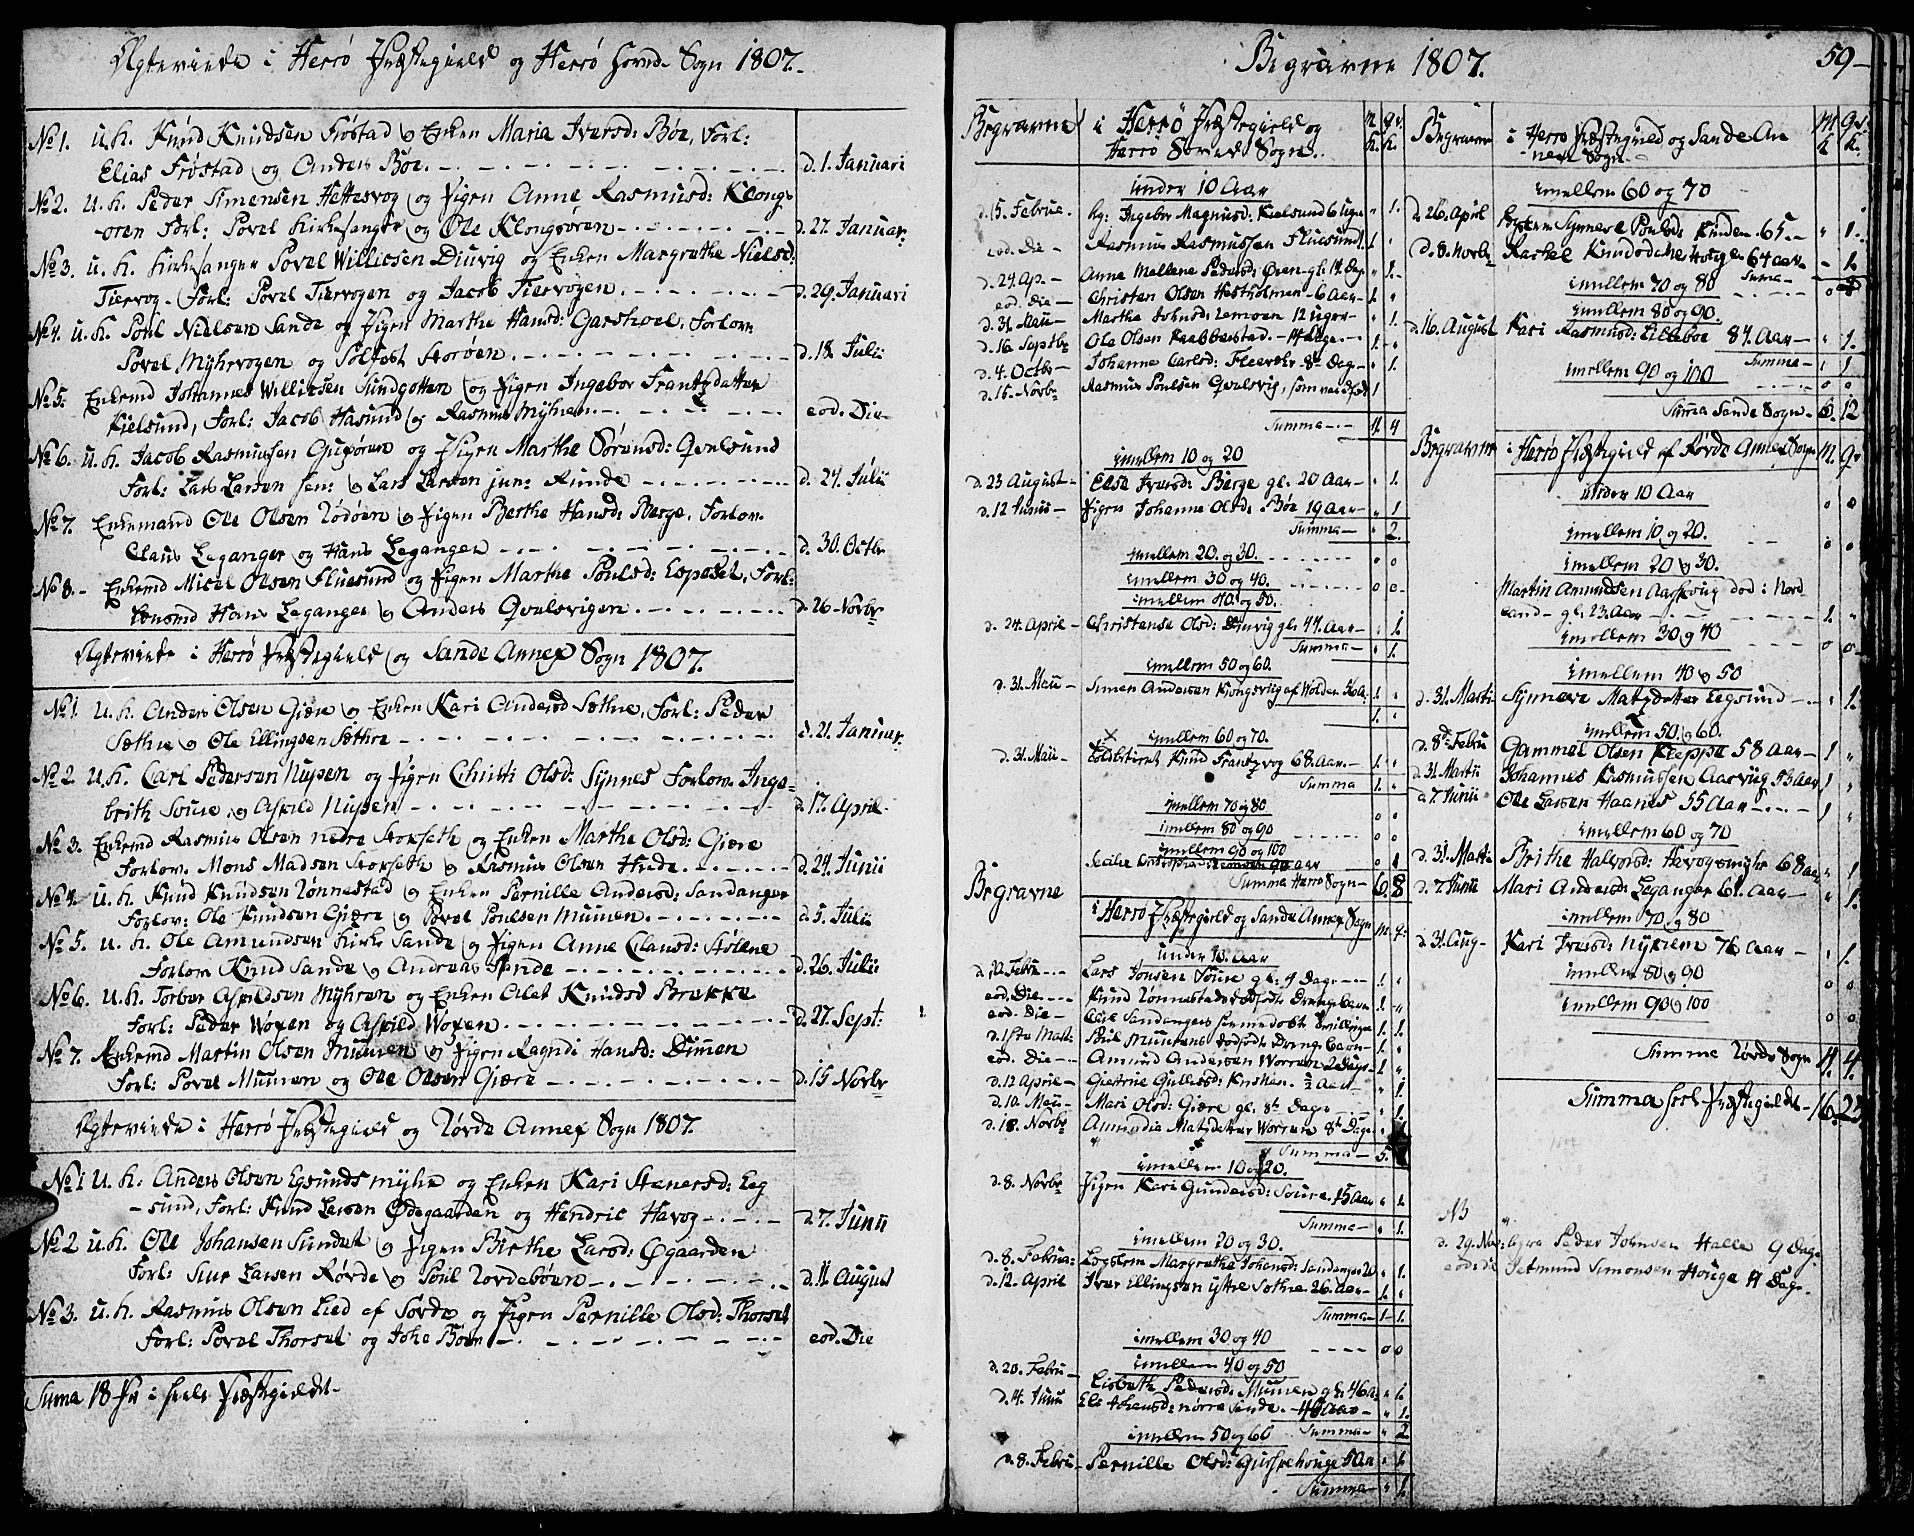 Ægteviede i Herrø Præstegield og Herrø Hoved-Sogn 1807.
No 1. u.k. Knud Knudsen Frøstad og Enken Maria Iversd: Bøe, Forl:
Elias Frøstad og Anders Bøe. d. 1. Januari
No 2. u.k. Peder Simensen Hettesvog og Pigen Anne Rasmusd: Klongs-
øren Forl: Povel Kirkesanger og Ole Klongsøren d. 27. Januar:
No 3. u.k. Kirkesanger Povel Willicsen Diuvig og Enken Margrethe Nielsd:
Tiervog. Forl: Povel Tiervogen og Jacob Tiervogen. d. 29. Januari
No 4. u.k. Poul Nielsen Sande og Pigen Marthe Hansd: Garshoel, Forlov:
Povel Myhrvogen og Solfest Storøen. d. 18. Julii
No 5. Enkemd Johannes Willicsen Sundgotten og Pigen Ingebor Frantzdatter
Kielsund, Forl: Jacob Hasund og Rasmus Myhren. eod. Die
No 6. u.k. Jacob Rasmussen Gurøren og Pigen Marthe Sørensd: Qvalsund
Forl: Lars Larsen sen: og Lars Larsen jun: Runde d. 24. Julii
No 7. Enkemand Ole Olsen Nødøen og Pigen Berthe Hansd: Berge. Forlov:
Claus Leganger og Hans Leganger d. 30. Octbr
No 8. Enkemd Micel Olsen Fluesund og Pigen Marthe Poulsd: Espeset, Forl:
Hans Leganger og Anders Qvalsvigen. d. 26 Novbr
Ægteviede i Herrø Præstegield og Sande Annex Sogn 1807.
No 1 u.k. Anders Olsen Giære og Enken Kari Andersd Sæthre, Forl: Peder
Sæthre og Ole Ellingsen Sæthre d. 21. Januar
No 2. u.k. Carl Pedersen Nupen og Pigen Christi Olsd: Synnes Forlov: Inge-
brith Soure og Aspild Nupen d. 17. April
No 3. Enkemd Rasmus Olsen nedre Storseth og Enken Marthe Olsd: Giære
Forlov. Mons Madsen Storseth og Rasmus Olsen Hide d. 24. Junii
No 4. u.k. Knud Knudsen Rønnestad og Enken Pernille Andersd: Sandanger
Forlov: Ole Knudsen Giære og Povel Poulsen Muuren. d. 5. Julii
No 5. u.k. Ole Amundsen Kirke Sande og Pigen Anne Clausd: Stølene
Forlov Knud Sande og Andreas Sande d. 26. Julii
No 6. u.k. Torber Aspildsen Myhren og Enken Olet Knudsd Brekke
Forl: Peder Woxen og Aspild Woxen. d. 27. Sept:
No 7. Enkemd Martin Olsen Muuren og Pigen Ragndi Hansd: Dimen
Forl: Povel Muuren og Ole Olsen Giære d. 15 Novbr
Ægteviede i Herrø Præstegield og Rørde Annex Sogn 1807.
No 1 u.k. Anders Olsen Egsundsmyhr og Enken Kari Stenersd: Eeg
-sund, Forl: Knud Larsen Ødegaarden og Hendric Havog d. 7. Junii
No 2 u.k. Ole Johansen Sundet og Pigen Birthe Larsd: Øgaarden
Forl: Siur Larsen Rørde og Poul Rordebøen d. 11 August
No 3. u.k. Rasmus Olsen Lied af Sørde og Pigen Pernille Olsd: Thorset
Forl: Povel Thorset og Johe Bøen eod. Die
Suma 18 Pr i heele Præstegieldet
Begravne 1807. 59
Begravne i Herrø Præstegield og M.k. Qv.k.
Herrø Hoved Sogn.
under 10 Aar
d. 15. Februe. Ingebor Magnusd: Kielsund 6 uger " 1.
eod. Die Rasmus Rasmussen Fluesund 1. "
d. 24. Ap. Anne Mallene Pedersd: Øren gl. 14. Dag. " 1.
eod. Die Christen Olsen Hestholmen 6 Aar 1. "
d. 31. Maii Marthe Johnsd: Lemoen 12 uger " 1.
d. 16. Septbr Ole Olsen Kaabberstad 14 Dage 1. "
d. 4. Octbr Johanne Carlsd: Fleervohr 8te Dag " 1.
d. 15. Novbr Rasmus Poulsen Qvalsvig, 1
Summa 4. 4
imellem 10 og 20
d. 23 August Else Iversd: Berge gl. 20 Aar " 1.
d. 12 Junii Pigen Johanne Olsd: Bøe 19 Aar " 1
Summa " 2.
imellem 20. og 30. 0 0
imellem 30 og 40. 0 0
imellem 40. og 50.
d. 24. April Christense Olsd: Diuvig gl: 44. Aar " 1.
Summa " 1.
imellem 50 og 60.
d. 31. Maii Simen Andersen Kongsviig af Wolden 56 A. 1. "
1. "
imellem 60 og 70.
d. 31. Maii Knud Frantzvog 68. Aar 1. "
Summa 1. "
imellem 70 og 80 0 0
imellem 80 og 90 0 0
imellem 90 og 100
Secilie 90 aar 0 1
Summa Herrø Sogn 6. 8
Begravne i Herrø Præstegield og Sande Annex Sogn M. Q:
under 10. Aar
d. 20. Febru Lars Jonsen Soure gl: 4 Dage 1. "
eod. Die Knud Rønnestads dødfødte Drengebarn 1. "
eod. Die Sandangers hiemmedøbt Tvillinger 1. 1.
d. 1ste Mart: Poul Muurens dødfødte Drengebarn 1. "
eod. Die Amund Andersen Worren 2 Dage 1. "
d. 12 April Giertrue Gullicsd: Knishen. ½ Aar " 1.
d. 10. Maii Mari Olsd: Giære gl. 8te Dage " 1.
d. 18. Novbr Amundia Matzdatter Worren 8te Dage
Summa 5.
imellem 10 og 20.
d. 8. Novbr Pigen Kari Gundersd: Soure. 15 Aar " 1.
Summa " 1.
imellem 20 og 30.
d. 8. Februa: Margrethe Johansd: Sandanger " 1.
d. 12. April Iver Ellingsen ystre Sæthre 26. Aar 1. "
Summa 1. 1.
imellem 30 og 40 0 0
imellem 40 og 50
d. 20. Febru Lisbeth Pedersd: Muuren gl: 46 A: " 1.
d. 4. Junii Eli Johansd: nørre Sande. 48 Aar " 1.
Summa " 2
imellem 50 og 60
d. 8. Febru Pernille Olsd: Gurskehouge 50 Aar " 1.
Summa " 1.
Begravne i Herrø Præstegield og Sande An M.k Qv.k.
nex Sogn.
imellem 60 og 70
d. 26. April Synnere Poulsd: Kinden 65. " 1.
d. 8. Novbr Rachel Knudsd: Houge 64 aar " 1.
Summa
imellem 70 og 80 0
imellem 80 og 90.
d. 16. August Kari Rasmusd: Lillebøe 84. Aar " 1.
Summa " 1
imellem 90 og 100 0 0
Summa Sande Sogn 6. 12
Begravne i Herrø Præstegield af Rørde Annex Sogn M. Qv
under 10 Aar 0 0
imellem 10 og 20. 0 0
imellem 20 og 30.
Martin Amundsen Aarsviig død i Nord
land gl. 23. Aar 1. "
imellem 30 og 40 0 0
imellem 40 og 50
d. 31. Marti Synnere Matzdatter Eegsund " 1.
imellem 50. og 60.
d. 8de Febru Gammel Olsen Kleppe 58 Aar 1 "
d. 31. Martii Johannes Rasmussen Aarviig 53 Aar 1 "
d. 7. Junii Ole Larsen Haanes 55 Aar 1 "
imellem 60 og 70
d. 31. Martii Brithe Halvorsd: Havogsmyhr 68 aar " 1
d. 7. Junii Mari Andersd: Leganger 61. Aar " 1.
imellem 70 og 80
d. 31. Aug Kari Iversd: Nykrem 76 Aar " 1.
imellem 80 og 90 0 0
imellem 90 og 100 0 0
Summa Rørde Sogn 4. 4.
Summa heele Præstegieldet 16. 24
NB
d. 29. Nov: Peder Johnsen Halle 9 Dage
eodid: Setmund Simonsen Houge 11 Dage